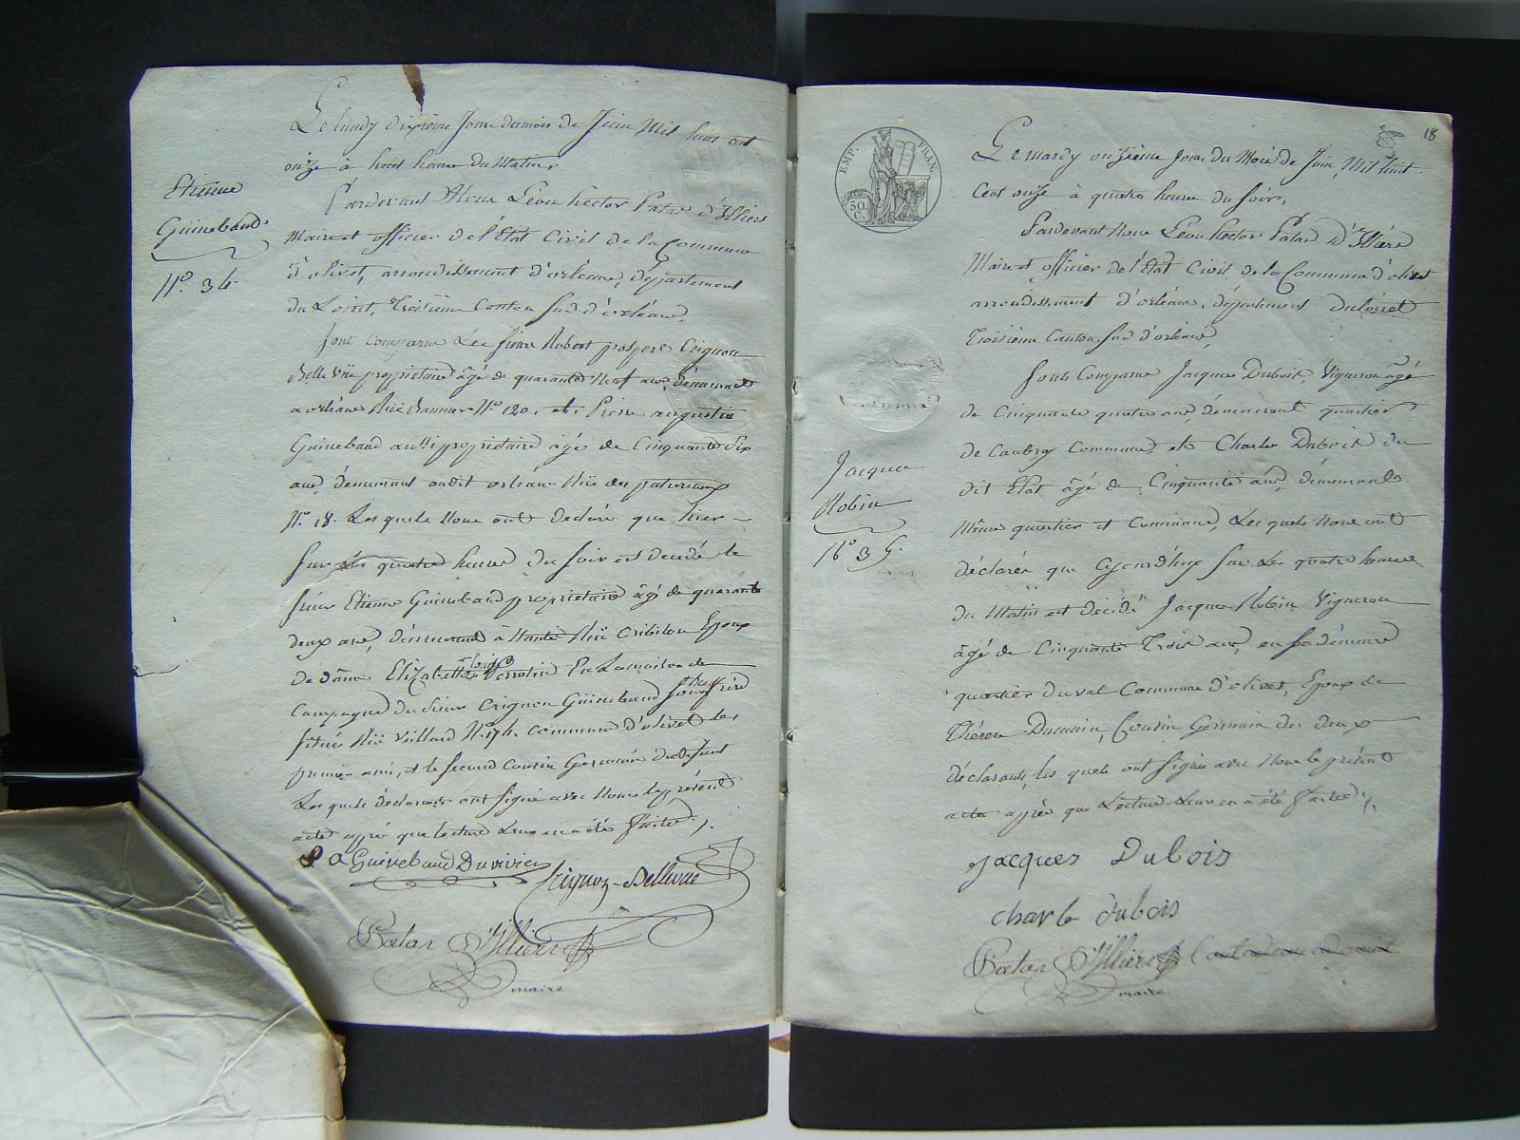 Etienne
Guinebaud
N.o 34.
Le lundy dixième Jour du mois de Juin Mil huit cent
onze à huit heure du Matin
Pardevant Nous Léon hector Patas d'Illiers
Maire et officier de l'Etat Civil de la Commune
d'olivet, arrondissement d'orléans, département
du Loiret, troisième Canton sud d'orléans,
Sont comparus Les sieurs Robert prosper Crignon
Bellevüe proprietaire âgé de quarante Neuf ans, demeurant
a orléans Rüe Bannier N.o 120. et Pierre augustin
Guinebaud aussi proprietaire âgé de Cinquante Six
ans, demeurant audit orléans Rüe des
N.o 18. Les quels Nous ont déclaré que hier
sur Les quatre heures du soir est decedé le
sieur Etienne Guinebaud proprietaire âgé de quarante
deux ans, démeurant à Nantes Rüe Crébilon Epoux
de dame Elizabeth Perrotin En La maison de
Campagne du sieur Crignon Guinebaud son frère
située Rüe Veillard N.o 174. commune d'olivet les
premier ami, et le second Cousin Germain du défunt
Les quels déclarants ont signé avec Nous le présent
acte après que lecture Leur en a été faite ./.
P A Guinebaud Duvivier
Crignon-Bellevue
Patas d'Illiers
maire
18
EMP. FRAN.
50
C.
Jacques
Robin
N.o 35.
Le mardy onzième Jour du Mois de Juin Mil huit
Cent onze à quatre heures du soir,
Pardevant Nous Léon hector Patas d'Illiers
Maire et officier de l'Etat Civil de la Commune d'olivet
arrondissement d'orléans, département du Loiret
troisième Canton sud d'orléans,
Sont Comparus Jacques Dubois, Vigneron âgé
de Cinquante quatre ans, démeurant quartier
de Caubray Commune et Charles Dubois du
dit Etat âgé de Cinquante ans, démeurant
même quartier et Commune, Les quels Nous ont
déclarés que sur Les quatre heures
du Matin est décédé Jacques Robin Vigneron
âgé de Cinquante Trois ans, en sa démeure
quartier du val Commune d'olivet, Epoux de
Thérese Cousin Germain des deux
déclarants, les quels ont signé avec Nous le présent
acte après que Lecture Leur en a été faite ./.
jacques Dubois
charle dubois
Patas d'Illiers
maire